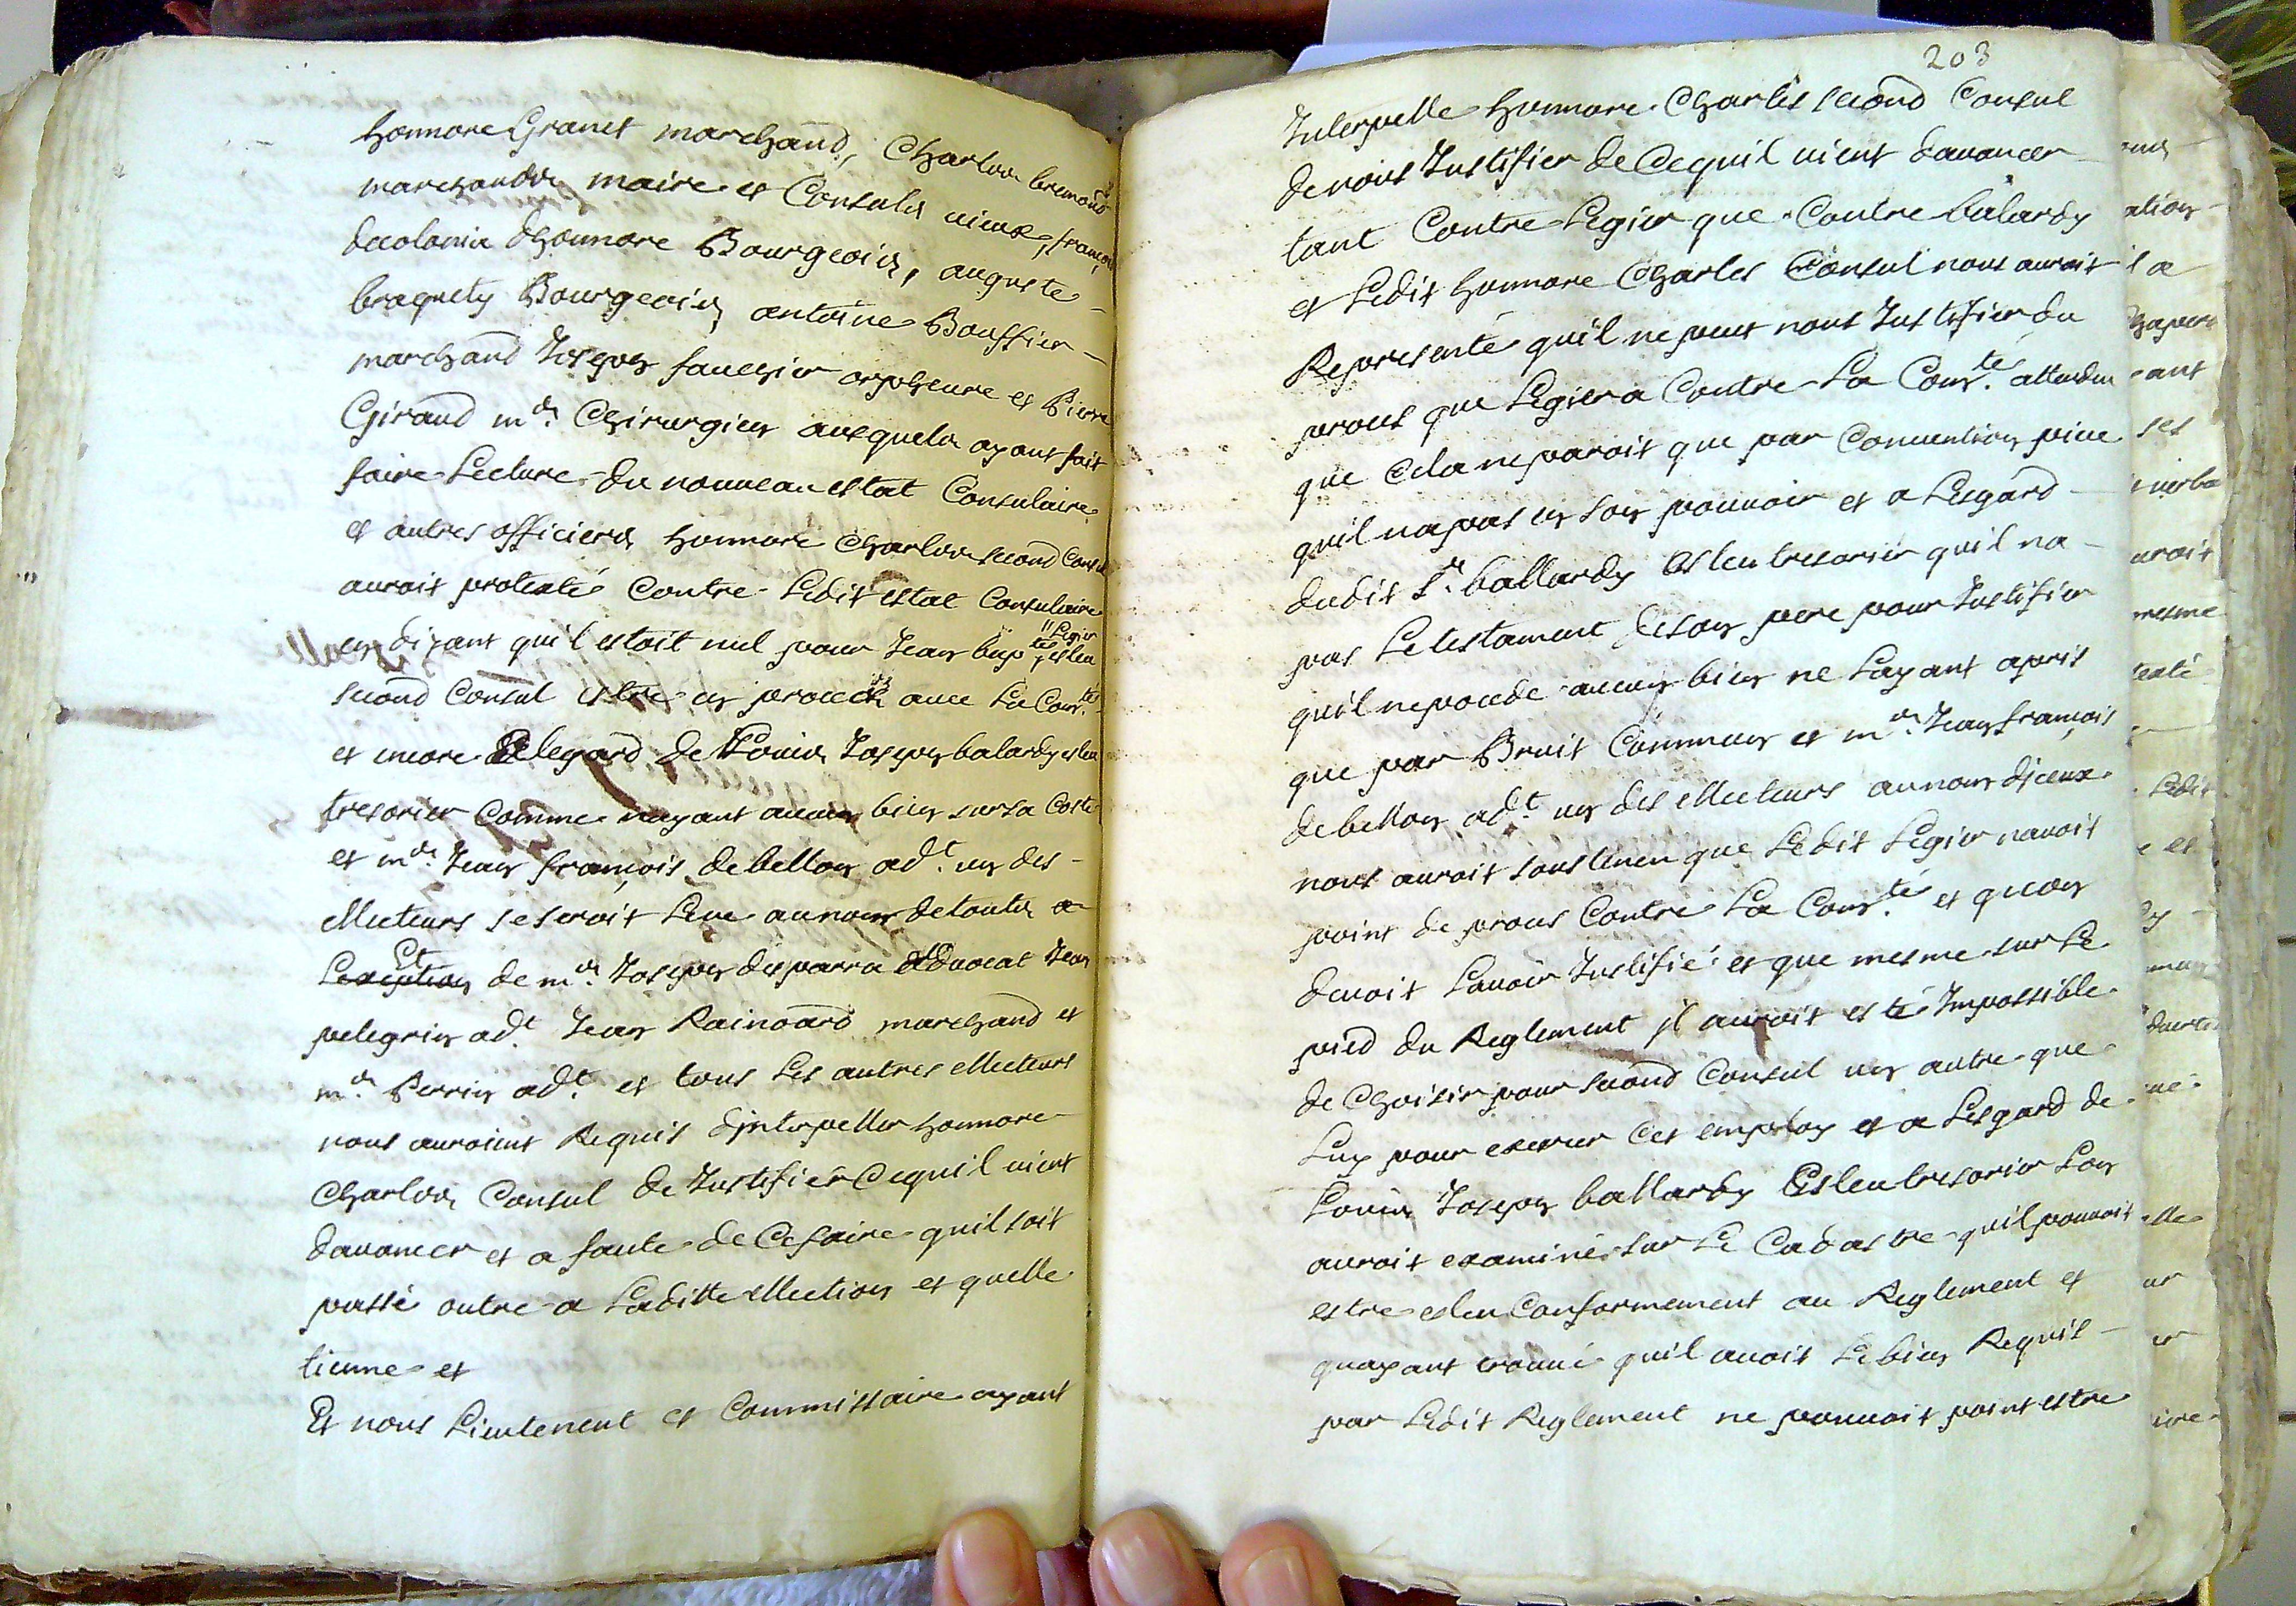 honnoré Granet marchand, Charlon bremond
marchandon maire et Consulx vieux, françois
decolonia dhonnoré Bourgeoix, auguste
braquety Bourgeoix antoine Bouffier
marchand Joseph fauchier orpheure et Pierre
Giraud mᵉ. Chirurgien auxquelx ayant fait
faire Lecture du nouveau estat Consulaire
et autres officierx honnoré Charlon second Consul
auroit protesté Contre Ledit estat Consulaire
en dizant qu'il estoit nul pour Jean bapᵗᵉ Legier esleu
second Consul estre en procex avec La Comᵗᵉ.
et encore a legard de Louix Joseph balardy esleu
tresorier Comme nayant aucun bien sur sa Coste
et mᵉ. Jean françois debellon adᵗ. un des
ellecteurs se seroit Levé au nom de toutx a
Lexception de mᵉ. Joseph desparra advocat Jean
pelegrin adᵗ Jean Rainoard marchand et
mᵉ. Perrin adᵗ. et tous Les autres ellecteurs
nous auroient Requis djnterpeller honnoré
Charlon Consul de Justifier Cequil vient
davancer et a faute de Cefaire quil soit
passé outre a Laditte ellection et quelle
tienne et
Et nous Lieutenent et Commissaire ayant
203
Interpellé honnoré Charles second Consul
de nous Justifier de Cequil vient davancer
tant Contre Legier que Contre balardy
et Ledit honnoré Charles Consul nous auroit
Representé quil ne peut nous Justifier du
proces que Legier a Contre La Comᵗᵉ. attendu
que Cela ne paroit que par Convention privé
quil napas en son pouvoir et a Lesgard
dudit Sʳ. ballardy Esleu tresorier quil na
pas Le testament deson pere pour Justifier
quil ne possede aucun bien ne Layant apris
que par Bruit Commun et mᵉ. Jean françois
debellon adᵗ. un des ellecteurs au nom djceux
nous auroit soustenu que Ledit Legier navoit
point de proces Contre La Comᵗᵉ. et quon
devoit Lavoir Justifié et que mesme sur Le
pied du Reglement jl auroit esté Impossible
de Choisir pour second Consul un autre que
Luy pour exercer Cet employ et a Lesgard de
Louix Joseph ballardy Esleu tresorier Lon
auroit examiné sur Le Cadastre quil pouvoit
estre esleu Conformement au Reglement et
quayant trouvé quil avoit Le bien Requis
par Ledit Reglement ne pouvoit point estre